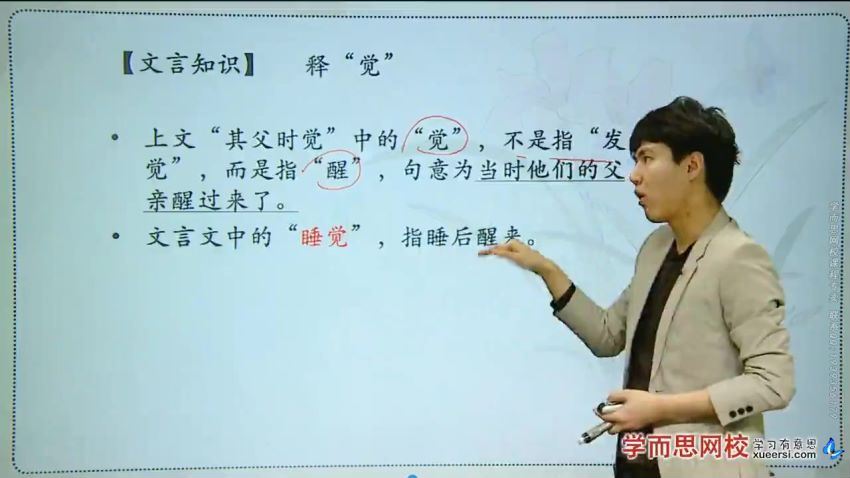 【文言知识】 释“觉”
• 上文“其父时觉”中的“觉”，不是指“发
觉”，而是指“醒”，句意为当时他们的父
亲醒过来了。
• 文言文中的“睡觉”，指睡后醒来。
学而思网校 学习有意思
xueersi.com